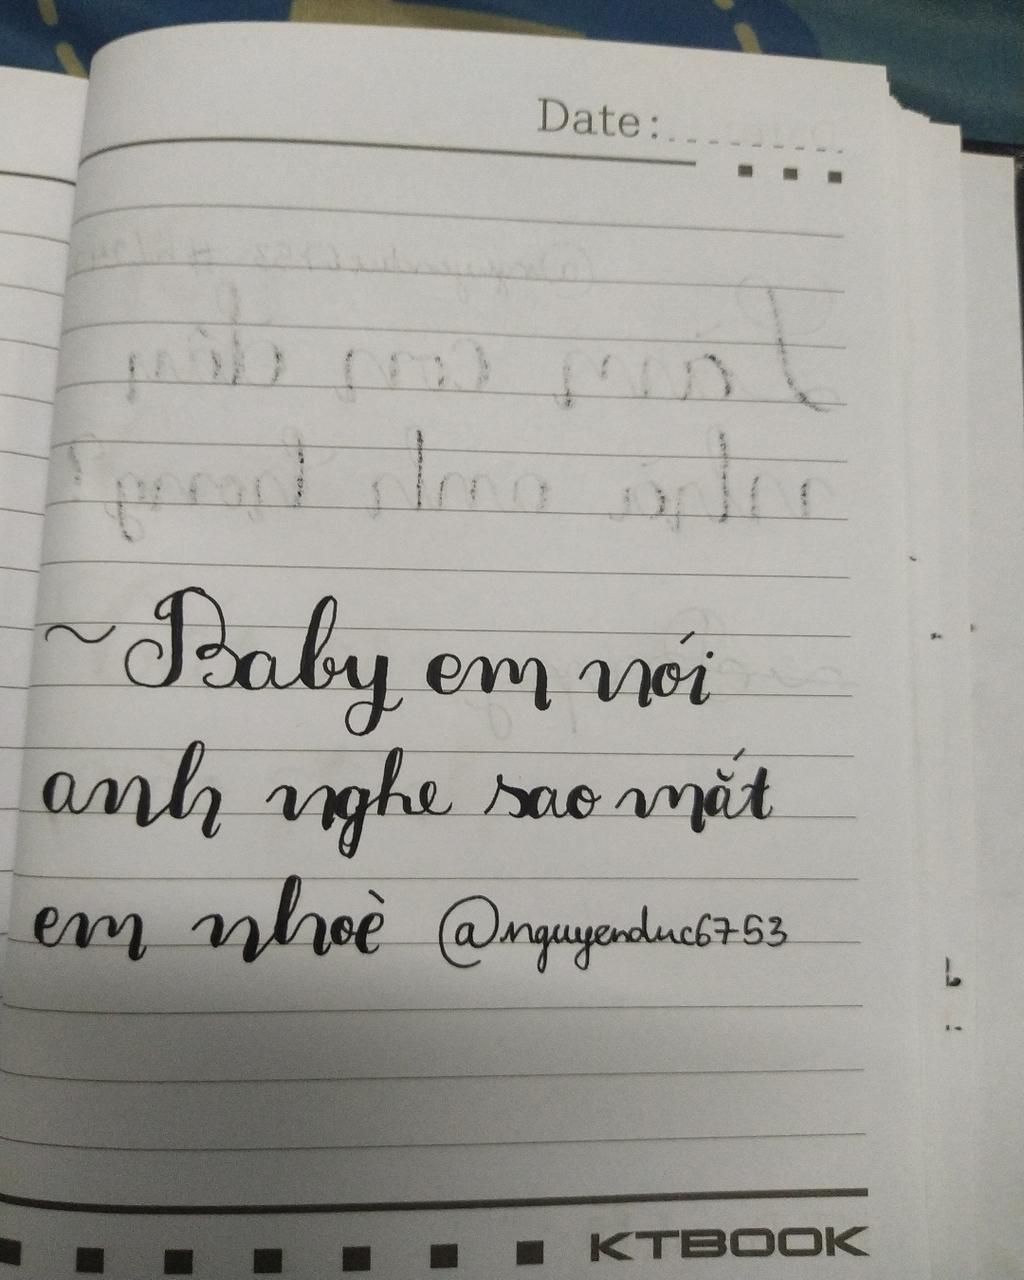 Date:
~Baby em nói
anh nghe sao mắt
em nhoè @nguyenduc6753
KTBOOK